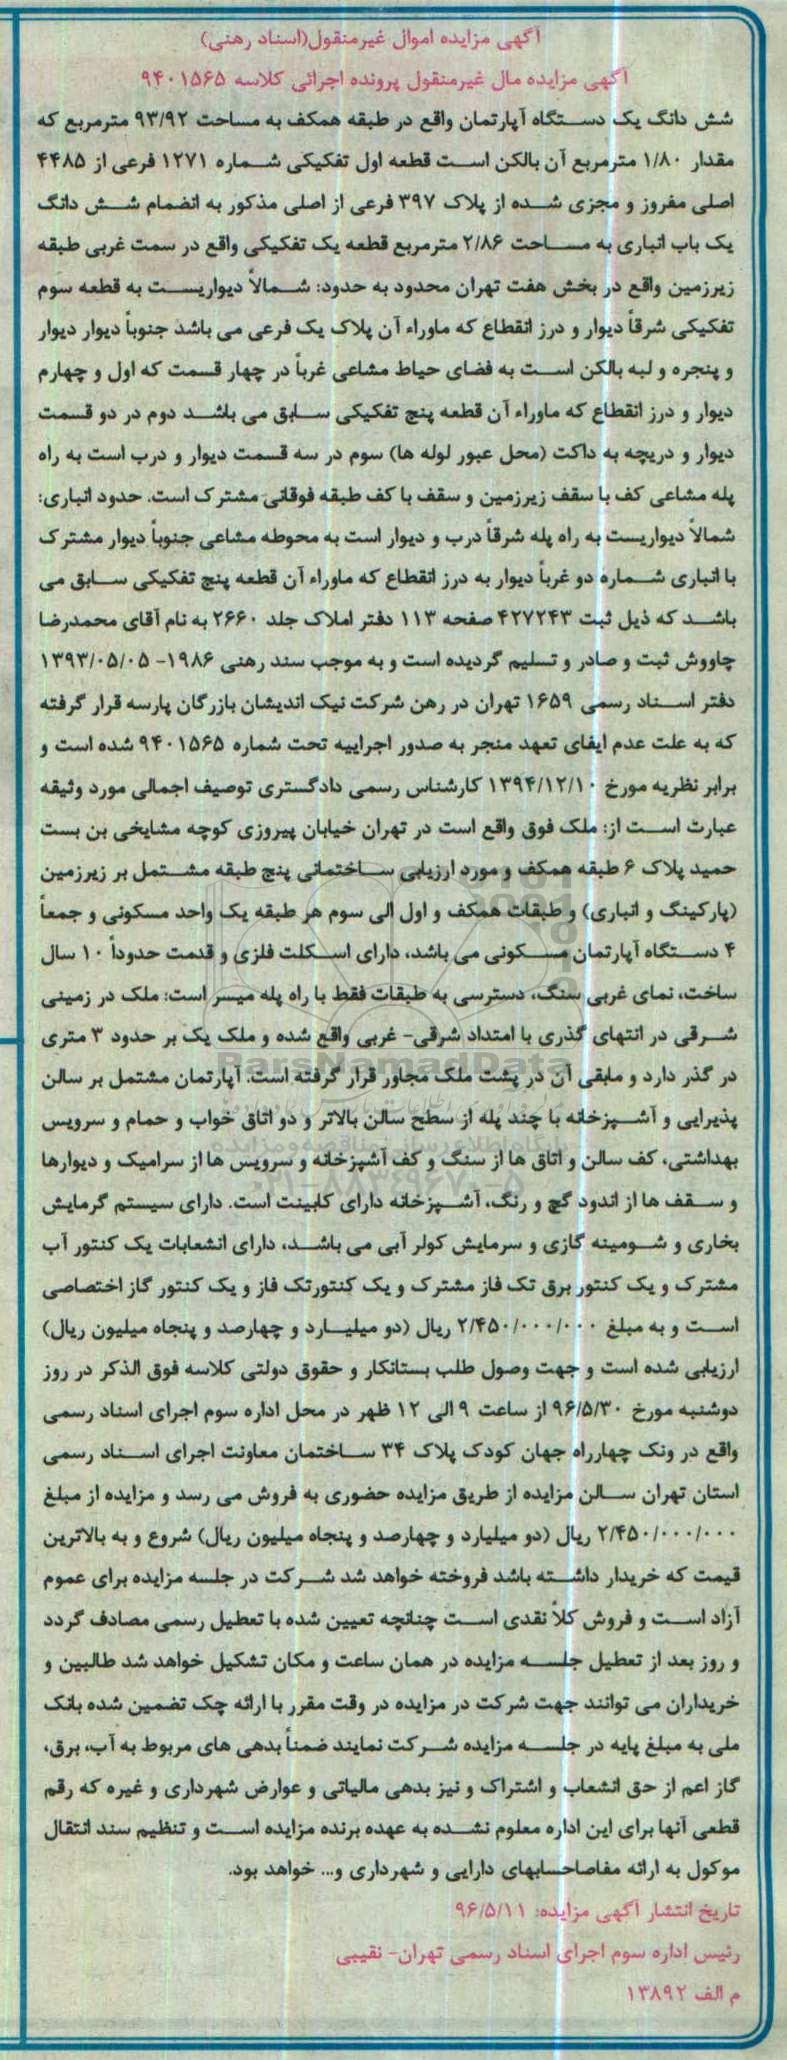 آگهی مزایده اموال غیرمنقول(اسناد رهنی)
آگهی مزایده مال غیرمنقول پرونده اجرائی کلاسه ۹۴۰۱۵۶۵
شش دانگ یک دستگاه آپارتمان واقع در طبقه همکف به مساحت ۹۳/۹۲ مترمربع که
مقدار ۱/۸۰ مترمربع آن بالکن است قطعه اول تفکیکی شماره ۱۲۷۱ فرعی از ۴۴۸۵
اصلی مفروز و مجزی شده از پلاک ۳۹۷ فرعی از اصلی مذکور به انضمام شش دانگ
یک باب انباری به مساحت ۲/۸۶ مترمربع قطعه یک تفکیکی واقع در سمت غربی طبقه
زیرزمین واقع در بخش هفت تهران محدود به حدود: شمالاً دیواریست به قطعه سوم
تفکیکی شرقاً دیوار و درز انقطاع که ماوراء آن پلاک یک فرعی می باشد جنوباً دیوار دیوار
و پنجره و لبه بالکن است به فضای حیاط مشاعی غرباً در چهار قسمت که اول و چهارم
دیوار و درز انقطاع که ماوراء آن قطعه پنج تفکیکی سابق می باشد دوم در دو قسمت
دیوار و دریچه به داکت (محل عبور لوله ها) سوم در سه قسمت دیوار و درب است به راه
پله مشاعی کف با سقف زیرزمین و سقف با کف طبقه فوقانی مشترک است. حدود انباری:
شمالاً دیواریست به راه پله شرقاً درب و دیوار است به محوطه مشاعی جنوباً دیوار مشترک
با انباری شماره دو غرباً دیوار به درز انقطاع که ماوراء آن قطعه پنج تفکیکی سابق می
باشد که ذیل ثبت ۴۲۷۲۴۳ صفحه ۱۱۳ دفتر املاک جلد ۲۶۶۰ به نام آقای محمدرضا
چاووش ثبت و صادر و تسلیم گردیده است و به موجب سند رهنی ۱۹۸۶- ۱۳۹۳/۰۵/۰۵
دفتر اسناد رسمی ۱۶۵۹ تهران در رهن شرکت نیک اندیشان بازرگان پارسه قرار گرفته
که به علت عدم ایفای تعهد منجر به صدور اجراییه تحت شماره ۹۴۰۱۵۶۵ شده است و
برابر نظریه مورخ ۱۳۹۴/۱۲/۱۰ کارشناس رسمی دادگستری توصیف اجمالی مورد وثیقه
عبارت است از: ملک فوق واقع است در تهران خیابان پیروزی کوچه مشایخی بن بست
حمید پلاک ۶ طبقه همکف و مورد ارزیابی ساختمانی پنج طبقه مشتمل بر زیرزمین
(پارکینگ و انباری) و طبقات همکف و اول الی سوم هر طبقه یک واحد مسکونی و جمعاً
۴ دستگاه آپارتمان مسکونی می باشد، دارای اسکلت فلزی و قدمت حدوداً ۱۰ سال
ساخت، نمای غربی سنگ، دسترسی به طبقات فقط با راه پله میسر است: ملک در زمینی
شرقی در انتهای گذری با امتداد شرقی- غربی واقع شده و ملک یک بر حدود ۳ متری
در گذر دارد و مابقی آن در پشت ملک مجاور قرار گرفته است. آپارتمان مشتمل بر سالن
پذیرایی و آشپزخانه با چند پله از سطح سالن بالاتر و دو اتاق خواب و حمام و سرویس
بهداشتی، کف سالن و اتاق ها از سنگ و کف آشپزخانه و سرویس ها از سرامیک و دیوارها
و سقف ها از اندود گچ و رنگ، آشپزخانه دارای کابینت است. دارای سیستم گرمایش
بخاری و شومینه گازی و سرمایش کولر آبی می باشد، دارای انشعابات یک کنتور آب
مشترک و یک کنتور برق تک فاز مشترک و یک کنتورتک فاز و یک کنتور گاز اختصاصی
است و به مبلغ ۲/۴۵۰/۰۰۰/۰۰۰ ریال (دو میلیارد و چهارصد و پنجاه میلیون ریال)
ارزیابی شده است و جهت وصول طلب بستانکار و حقوق دولتی کلاسه فوق الذکر در روز
دوشنبه مورخ ۹۶/۵/۳۰ از ساعت ۹ الی ۱۲ ظهر در محل اداره سوم اجرای اسناد رسمی
واقع در ونک چهارراه جهان کودک پلاک ۳۴ ساختمان معاونت اجرای اسناد رسمی
استان تهران سالن مزایده از طریق مزایده حضوری به فروش می رسد و مزایده از مبلغ
۲/۴۵۰/۰۰۰/۰۰۰ ریال (دو میلیارد و چهارصد و پنجاه میلیون ریال) شروع و به بالاترین
قیمت که خریدار داشته باشد فروخته خواهد شد شرکت در جلسه مزایده برای عموم
آزاد است و فروش کلاً نقدی است چنانچه تعیین شده با تعطیل رسمی مصادف گردد
و روز بعد از تعطیل جلسه مزایده در همان ساعت و مکان تشکیل خواهد شد طالبین و
خریداران می توانند جهت شرکت در مزایده در وقت مقرر با ارائه چک تضمین شده بانک
ملی به مبلغ پایه در جلسه مزایده شرکت نمایند ضمناً بدهی های مربوط به آب، برق،
گاز اعم از حق انشعاب و اشتراک و نیز بدهی مالیاتی و عوارض شهرداری و غیره که رقم
قطعی آنها برای این اداره معلوم نشده به عهده برنده مزایده است و تنظیم سند انتقال
موکول به ارائه مفاصاحسابهای دارایی و شهرداری و... خواهد بود.
تاریخ انتشار آگهی مزایده: ۹۶/۵/۱۱
رئیس اداره سوم اجرای اسناد رسمی تهران- نقیبی
م الف ۱۳۸۹۲
ParsNamadData
پایگاه اطلاع رسانی مناقصه و مزایده
۰۲۱-۸۸۳۴۹۶۷۰-۵